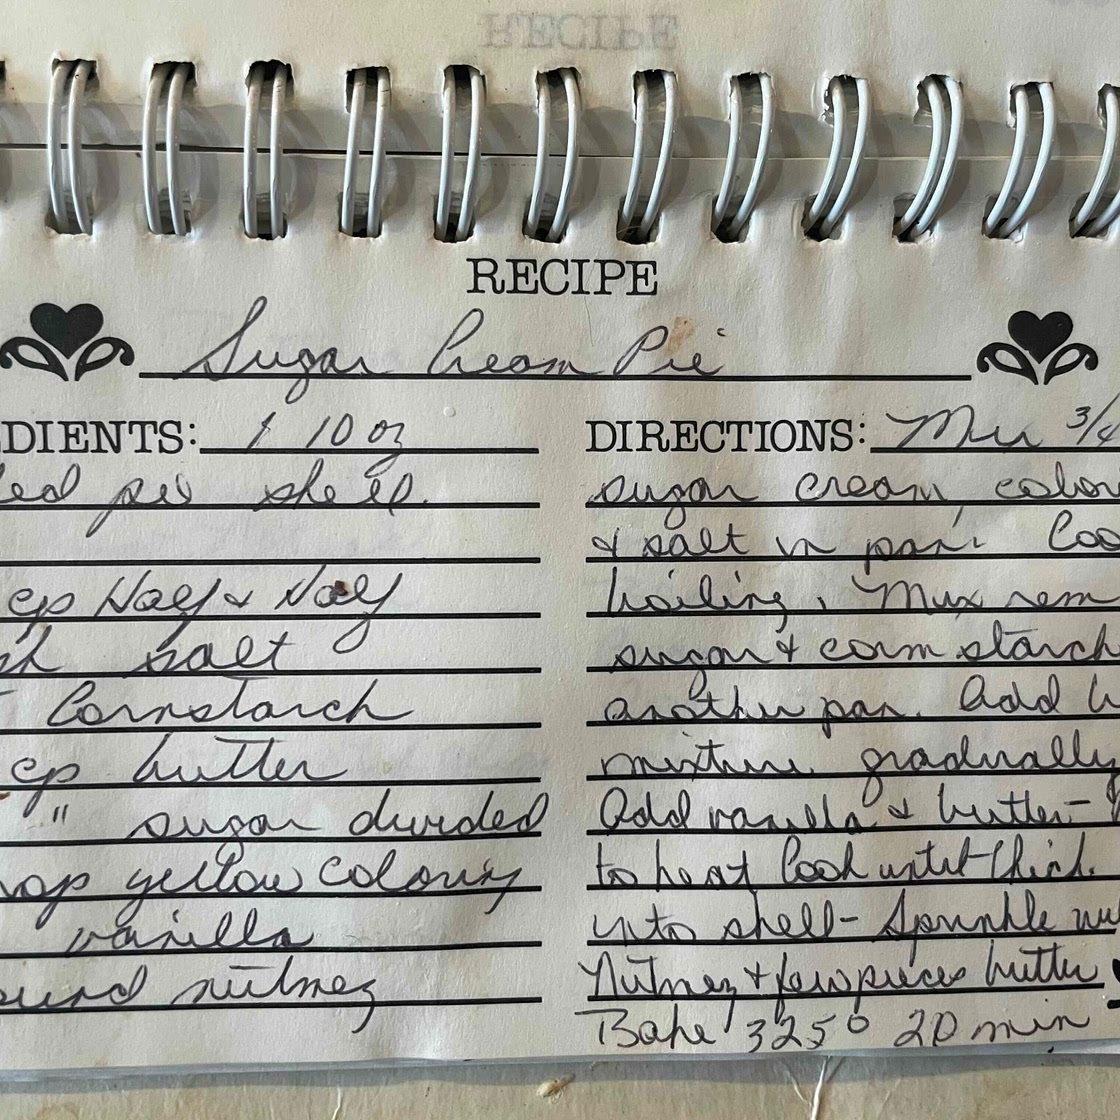 RECIPE
Sugar Cream Pie
DIENTS: 1 10 oz
ed pie shell.
cp Half & Half
salt
Cornstarch
cp butter
" sugar divided
op yellow coloring
vanilla
ound nutmeg
DIRECTIONS: Mix 3/4
sugar cream, color
& salt in pan. Coo
boiling. Mix rem
sugar & corn starch
another pan. Add h
mixture gradually
Add vanilla & butter -
to heat Cook until thick.
into shell - Sprinkle
Nutmeg & few pieces butter
Bake 325° 20 min